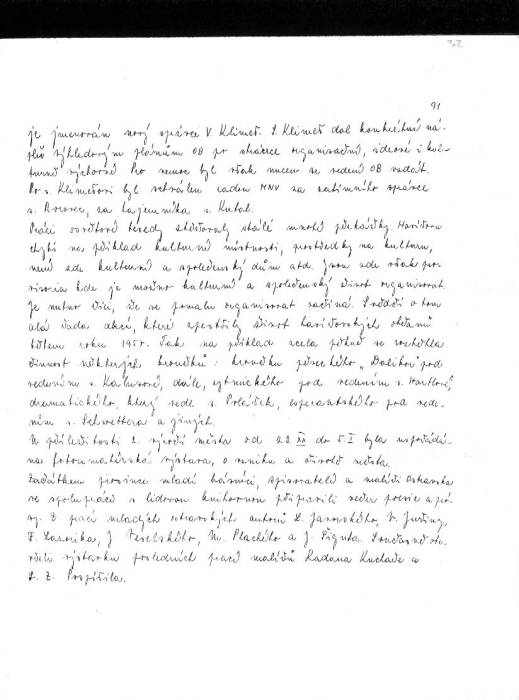 32
91
je jmenován nový správce V. Klimeš. S. Klimeš dal konkrétní ná-
plň výhledovým plánům OB po stránce organisační, ideové i kul-
turně výchovné Pro nemoc byl však nucen se vedení OB vzdát.
Po s. Klimešovi byl schválen radou MNV za zatímního správce
s. za tajemníka s. Kubal.
Práci osvětové besedy stěžovaly stálé mnohé překážky. Havířovu
chybí na příklad kulturní místnosti, prostředky na kulturu,
není zde kulturní a společenský dům atd. Jsou zde však pro-
visoria kde je možno kulturní a společenský život organisovat.
Je nutno říci, že se pomalu organisovat začíná. Svědčí o tom
celá řada akcí, které zpestřily život havířovských občanů
během roku 195 . Tak na příklad zcela pěkně se rozběhla
činnost některých kroužků: kroužku pěveckého „Dalibor" pod
vedením s. Kálusové, dále, rytmického pod vedením s. Hartlové,
dramatického, který vede s. Poláček, esperantského pod vede-
ním s. Schwettera a jiných.
U příležitosti 1. výročí města od 22. XII do 5. I byla uspořádá-
na fotoamatérská výstava, o vzniku a životě města.
Začátkem prosince mladí básníci, spisovatelé a malíři Ostravska
ve spolupráci s lidovou knihovnou připravili večer poesie a pró-
sy. Z prací mladých ostravských autorů L. V.
J. Veselského, M. Plachého a J. Současně ote-
vřeli výstavku posledních prací malířů Radana a
L. Z. Pospíšila.